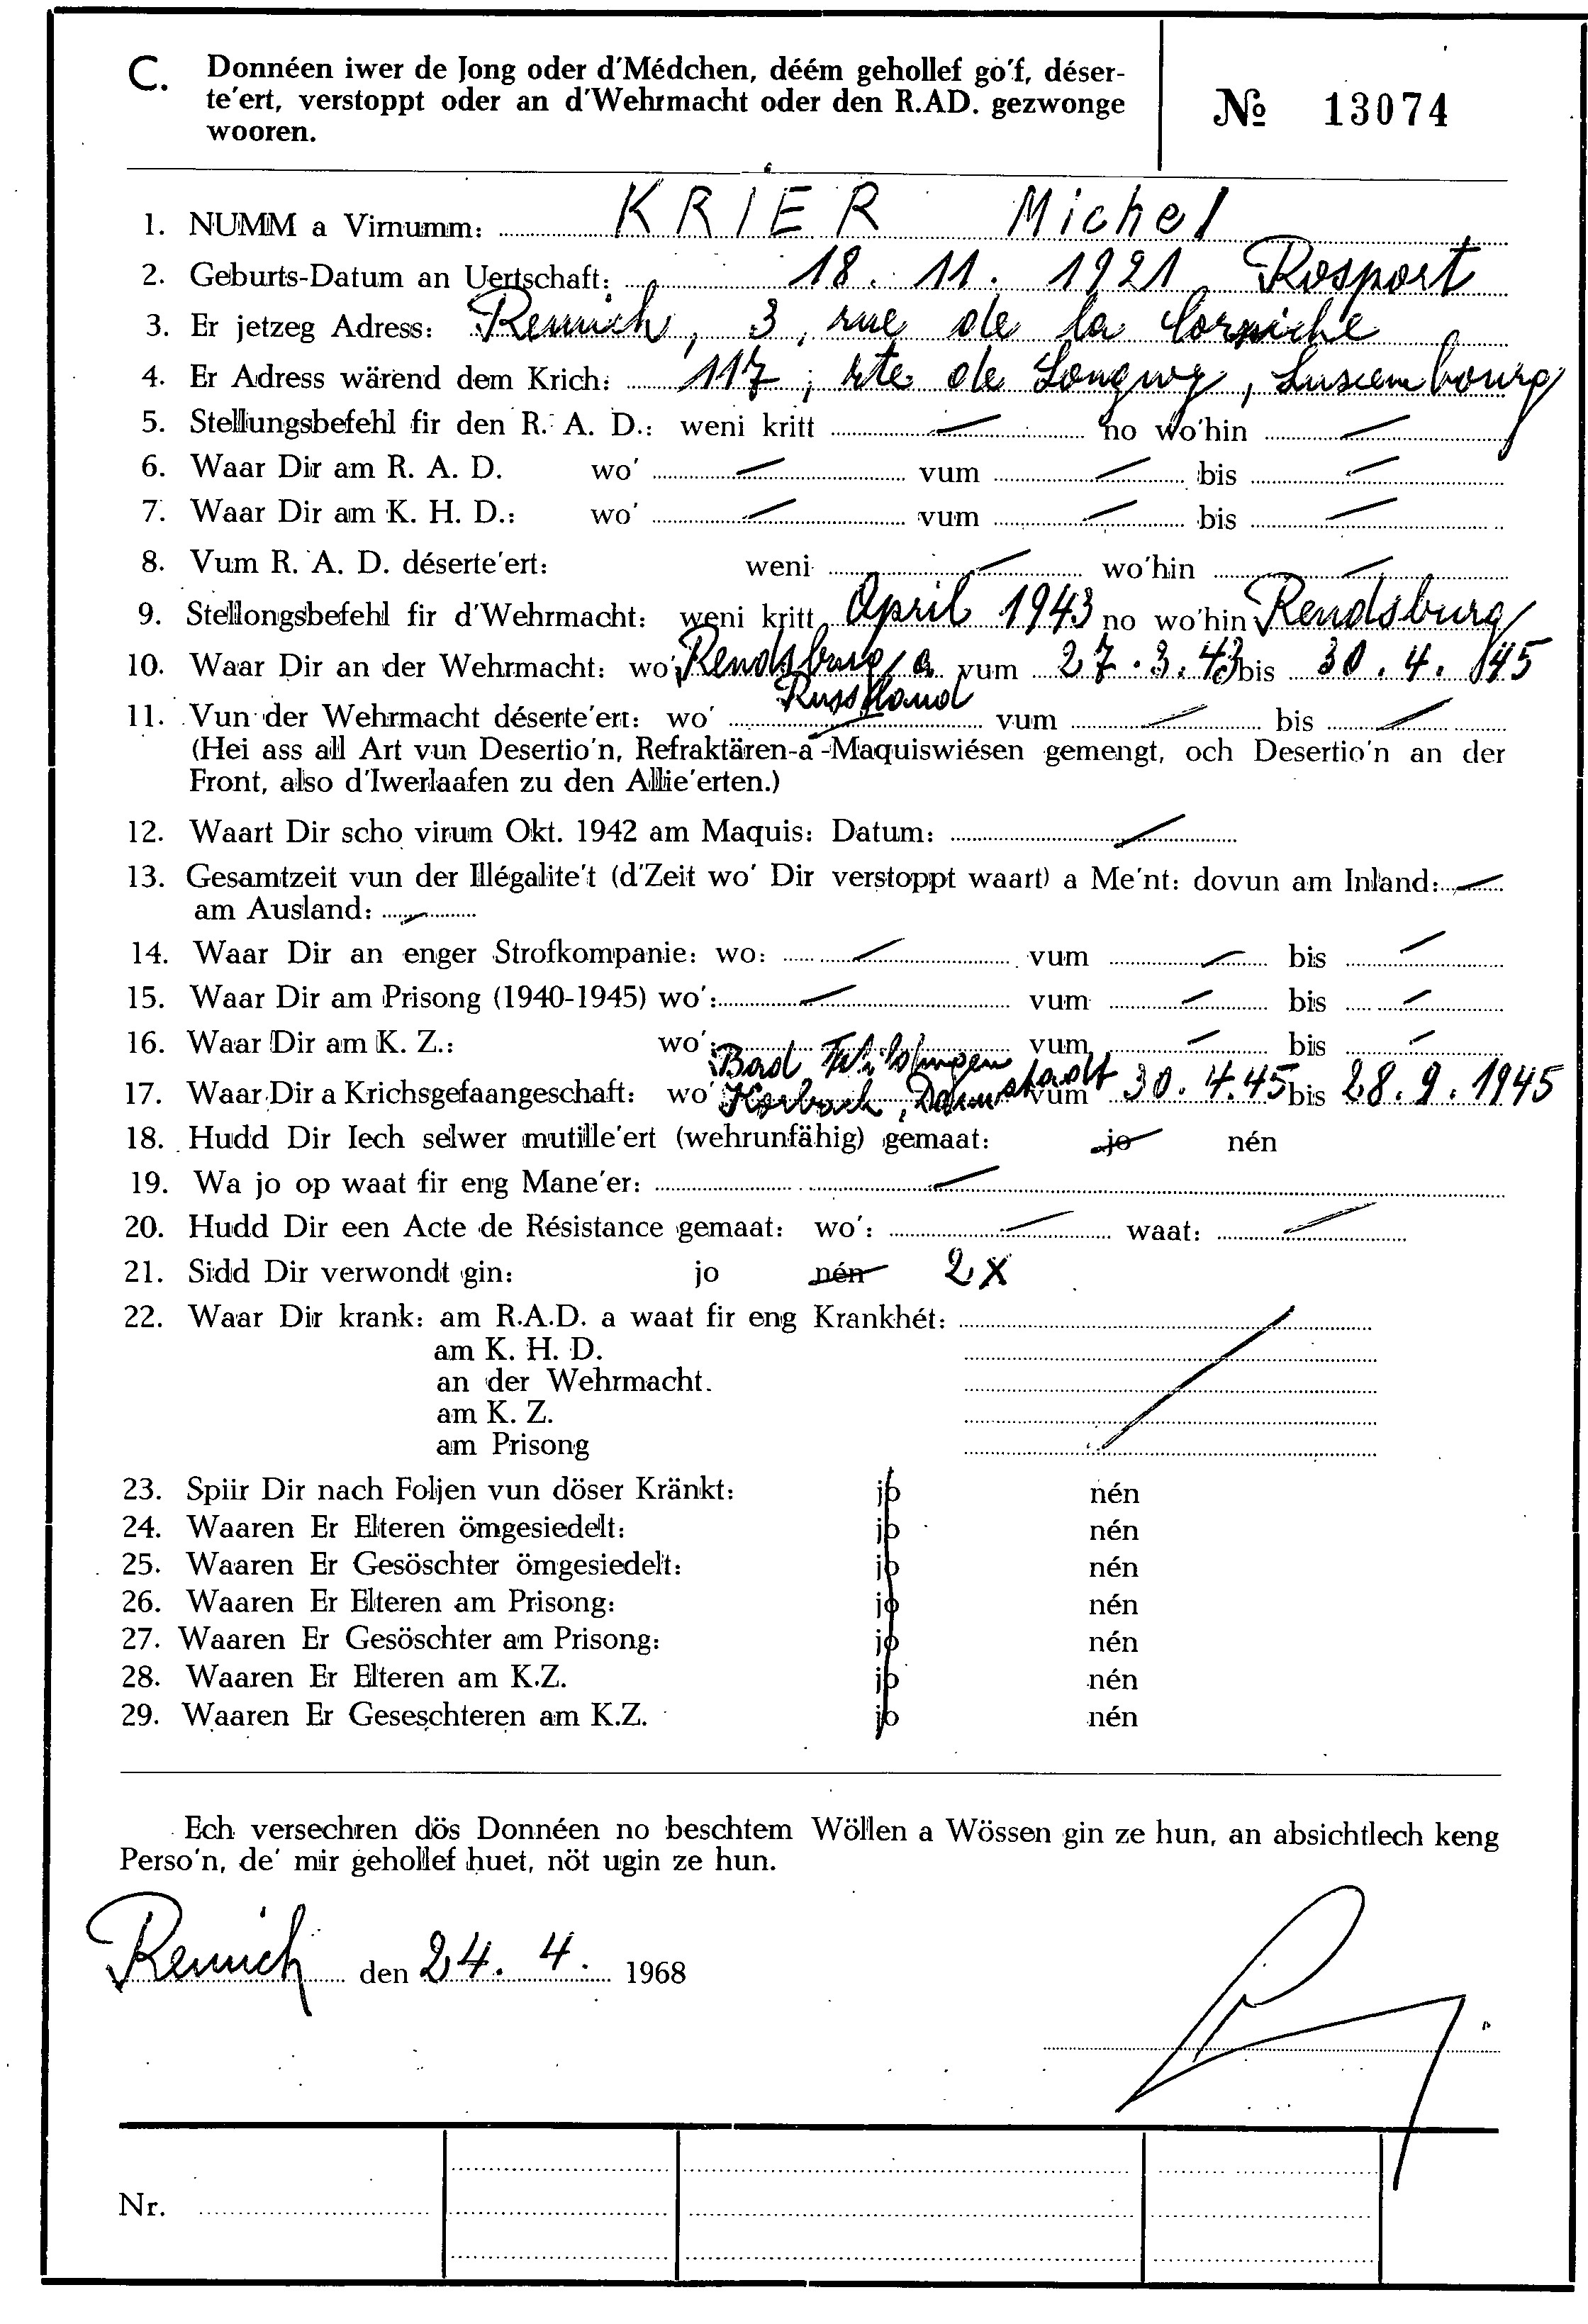 C. Donnéen iwer de Jong oder d'Médchen, déém gehollef go'f, déser-
te'ert, verstoppt oder an d'Wehrmacht oder den R.AD. gezwonge
wooren.
№ 13074
1. NUMM a Virnumm: KRIER Michel
2. Geburts-Datum an Uertschaft: 18. 11. 1921 Rosport
3. Er jetzeg Adress: Remich, 3, rue de la Corniche
4. Er Adress wärend dem Krich: 117, rte de Longwy, Luxembourg
5. Stellungsbefehl fir den R. A. D.: weni kritt — no wo'hin —
6. Waar Dir am R. A. D. wo' — vum — bis —
7. Waar Dir am K. H. D.: wo' — vum — bis —
8. Vum R. A. D. déserte'ert: weni — wo'hin —
9. Stellongsbefehl fir d'Wehrmacht: weni kritt April 1943 no wo'hin Rendsburg
10. Waar Dir an der Wehrmacht: wo' Rendsburg a vum 27.3.43 bis 30.4.45
Russland
11. Vun der Wehrmacht déserte'ert: wo' — vum — bis —
(Hei ass all Art vun Desertio'n, Refraktären-a -Maquiswiésen gemengt, och Desertio'n an der
Front, also d'Iwerlaafen zu den Allie'erten.)
12. Waart Dir scho virum Okt. 1942 am Maquis: Datum: —
13. Gesamtzeit vun der Illégalite't (d'Zeit wo' Dir verstoppt waart) a Me'nt: dovun am Inland: —
am Ausland: —
14. Waar Dir an enger Strofkompanie: wo: — vum — bis —
15. Waar Dir am Prisong (1940-1945) wo': — vum — bis —
16. Waar Dir am K. Z.: wo': vum — bis —
Bad Wildungen
17. Waar Dir a Krichsgefaangeschaft: wo' Korbach, Darmstadt vum 30.4.45 bis 28.9.1945
18. Hudd Dir Iech selwer mutille'ert (wehrunfähig) gemaat: jo nén
19. Wa jo op waat fir eng Mane'er: —
20. Hudd Dir een Acte de Résistance gemaat: wo': — waat: —
21. Sidd Dir verwondt gin: jo nén 2x
22. Waar Dir krank: am R.A.D. a waat fir eng Krankhét:
am K. H. D.
an der Wehrmacht.
am K. Z.
am Prisong
23. Spiir Dir nach Foljen vun döser Kränkt: jo nén
24. Waaren Er Elteren ömgesiedelt: jo nén
25. Waaren Er Gesöschter ömgesiedelt: jo nén
26. Waaren Er Elteren am Prisong: jo nén
27. Waaren Er Gesöschter am Prisong: jo nén
28. Waaren Er Elteren am K.Z. jo nén
29. Waaren Er Geseschteren am K.Z. jo nén
Ech versechren dös Donnéen no beschtem Wöllen a Wössen gin ze hun, an absichtlech keng
Perso'n, de' mir gehollef huet, nöt ugin ze hun.
Remich den 24. 4. 1968
Nr.